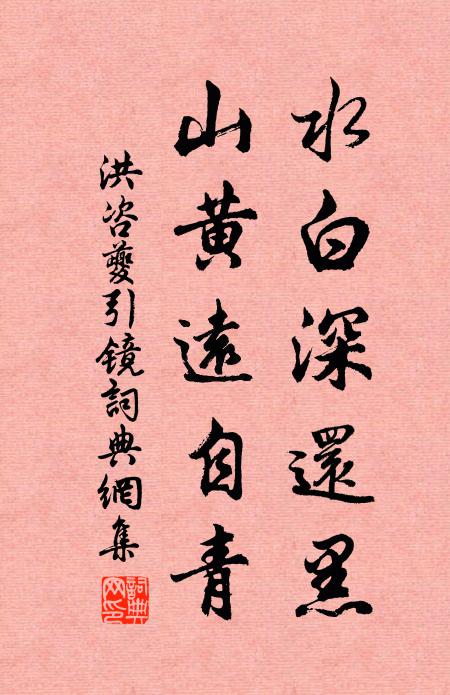 水白深還黑
山黄遠自青
洪咨夔引镜詞典網集
詞典
网印